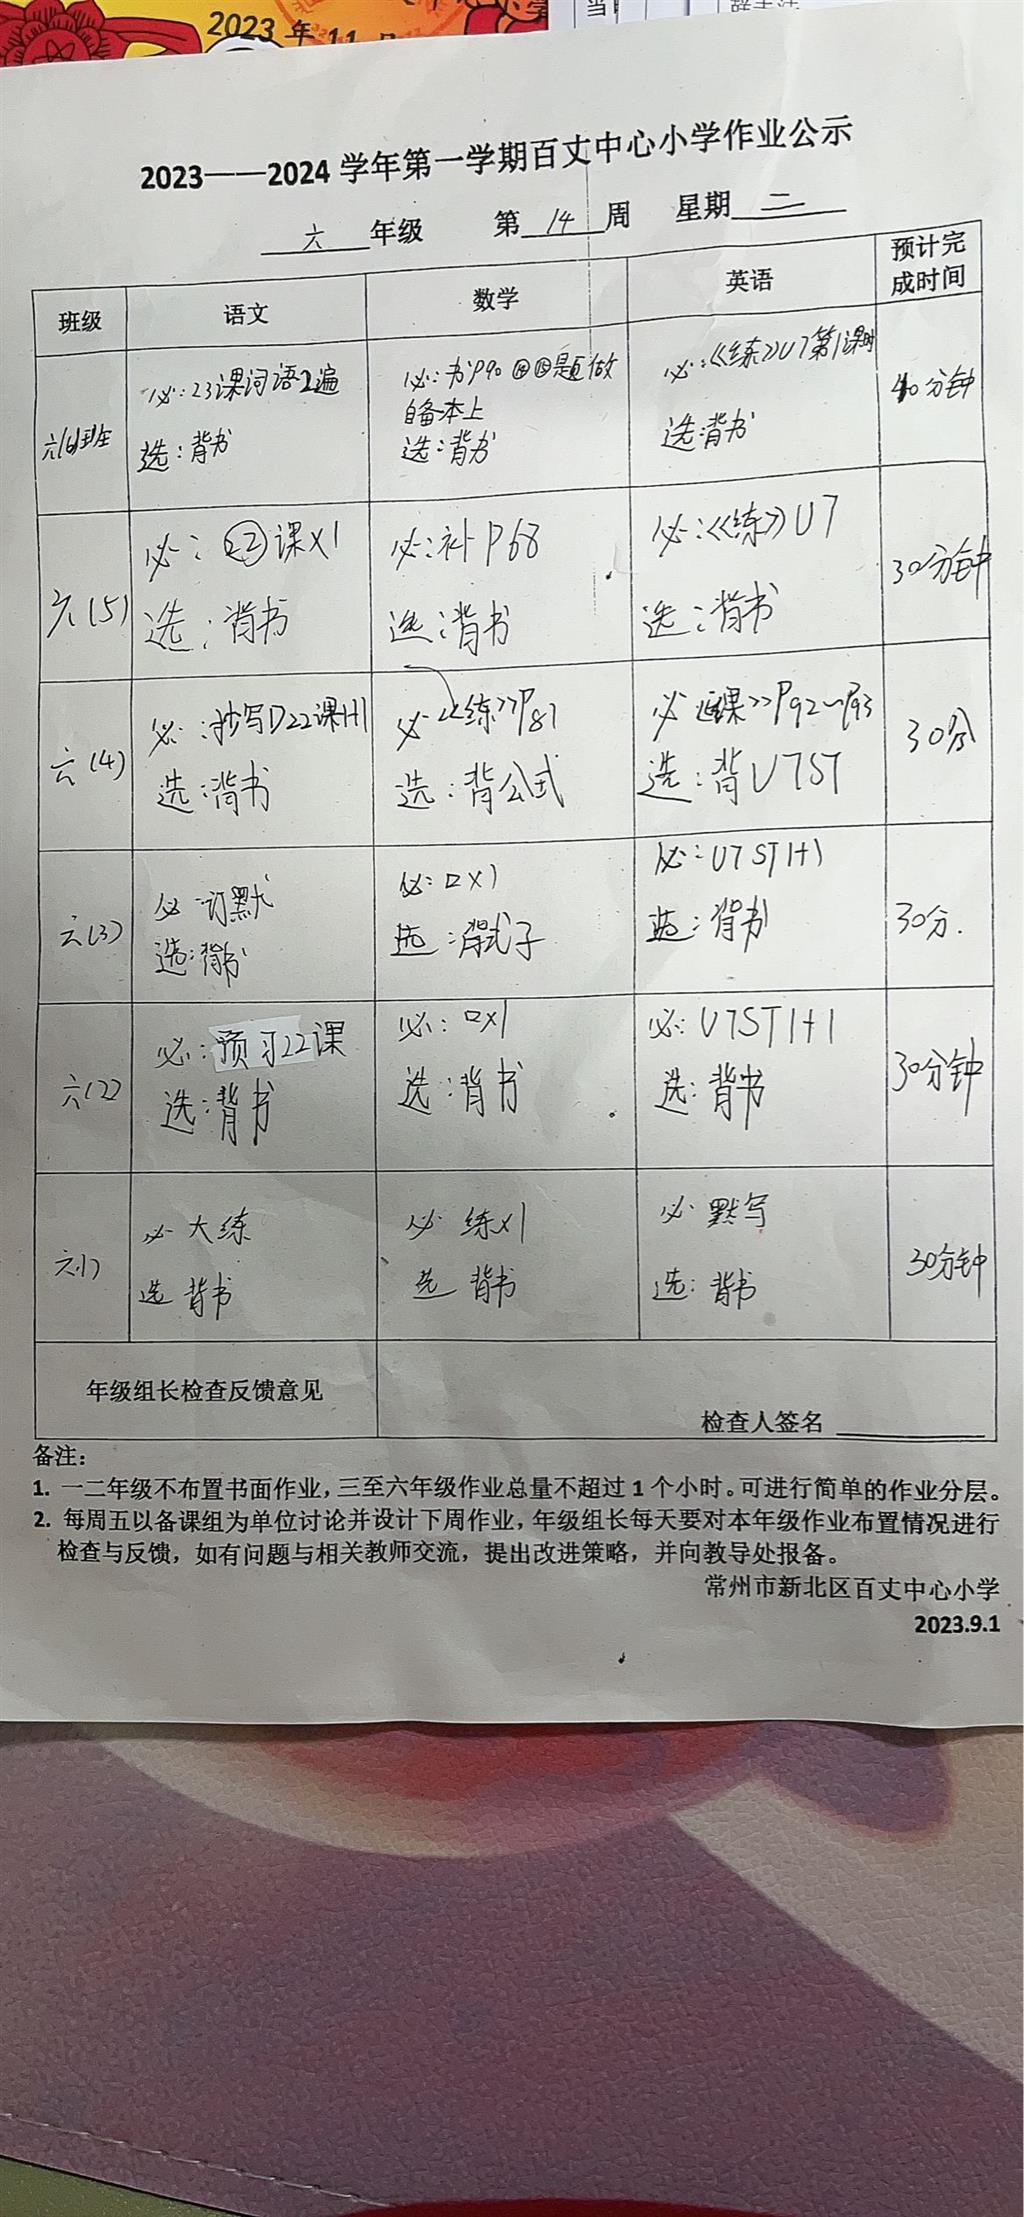 2023年11月
2023——2024学年第一学期百丈中心小学作业公示
六 年级 第 14 周 星期 二
班级 语文 数学 英语 预计完成时间
六(6)班
必:23课词语2遍
选:背书
必:书P90 题做
自备本上
选:背书
必:《练》U7第1课时
选:背书
40分钟
六(5)
必:22课x1
选:背书
必:补P68
选:背书
必:《练》U7
选:背书
30分钟
六(4)
必:抄写D22课1+1
选:背书
必《练》P81
选:背公式
必 课》P92~P93
选:背U7ST
30分
六(3)
必 订默
选:背书
必:口x1
选:背式子
必:U7ST1+1
选:背书
30分.
六(2)
必:预习22课
选:背书
必:口x1
选:背书
必:U7ST1+1
选:背书
30分钟
六(1)
必 大练
选 背书
必 练x1
选 背书
必 默写
选:背书
30分钟
年级组长检查反馈意见
检查人签名
备注:
1. 一二年级不布置书面作业,三至六年级作业总量不超过1个小时。可进行简单的作业分层。
2. 每周五以备课组为单位讨论并设计下周作业,年级组长每天要对本年级作业布置情况进行
检查与反馈,如有问题与相关教师交流,提出改进策略,并向教导处报备。
常州市新北区百丈中心小学
2023.9.1